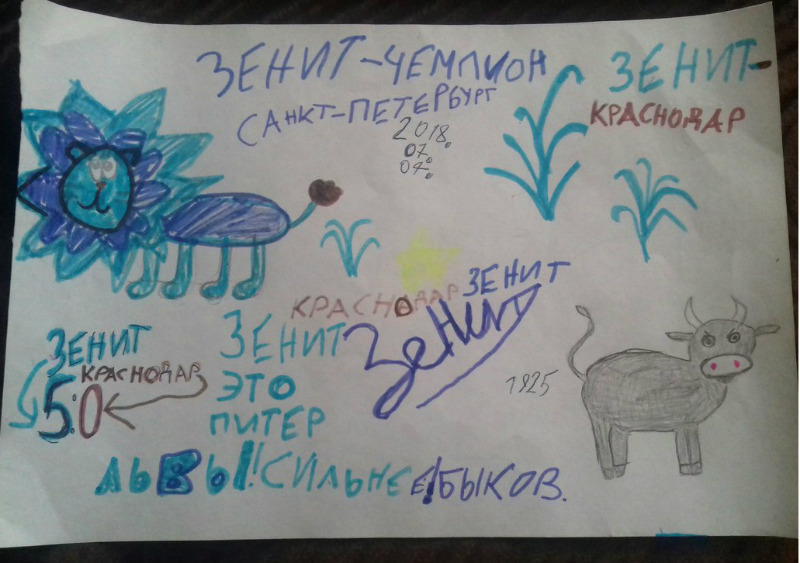 ЗЕНИТ-ЧЕМПИОН
САНКТ-ПЕТЕРБУРГ
2018.
07.
07.
ЗЕНИТ-
КРАСНОДАР
КРАСНОДАР ЗЕНИТ
Зенит
ЗЕНИТ
КРАСНОДАР
5:0
ЗЕНИТ
ЭТО
ПИТЕР
1925
ЛЬВЫ! СИЛЬНЕЕ! БЫКОВ.